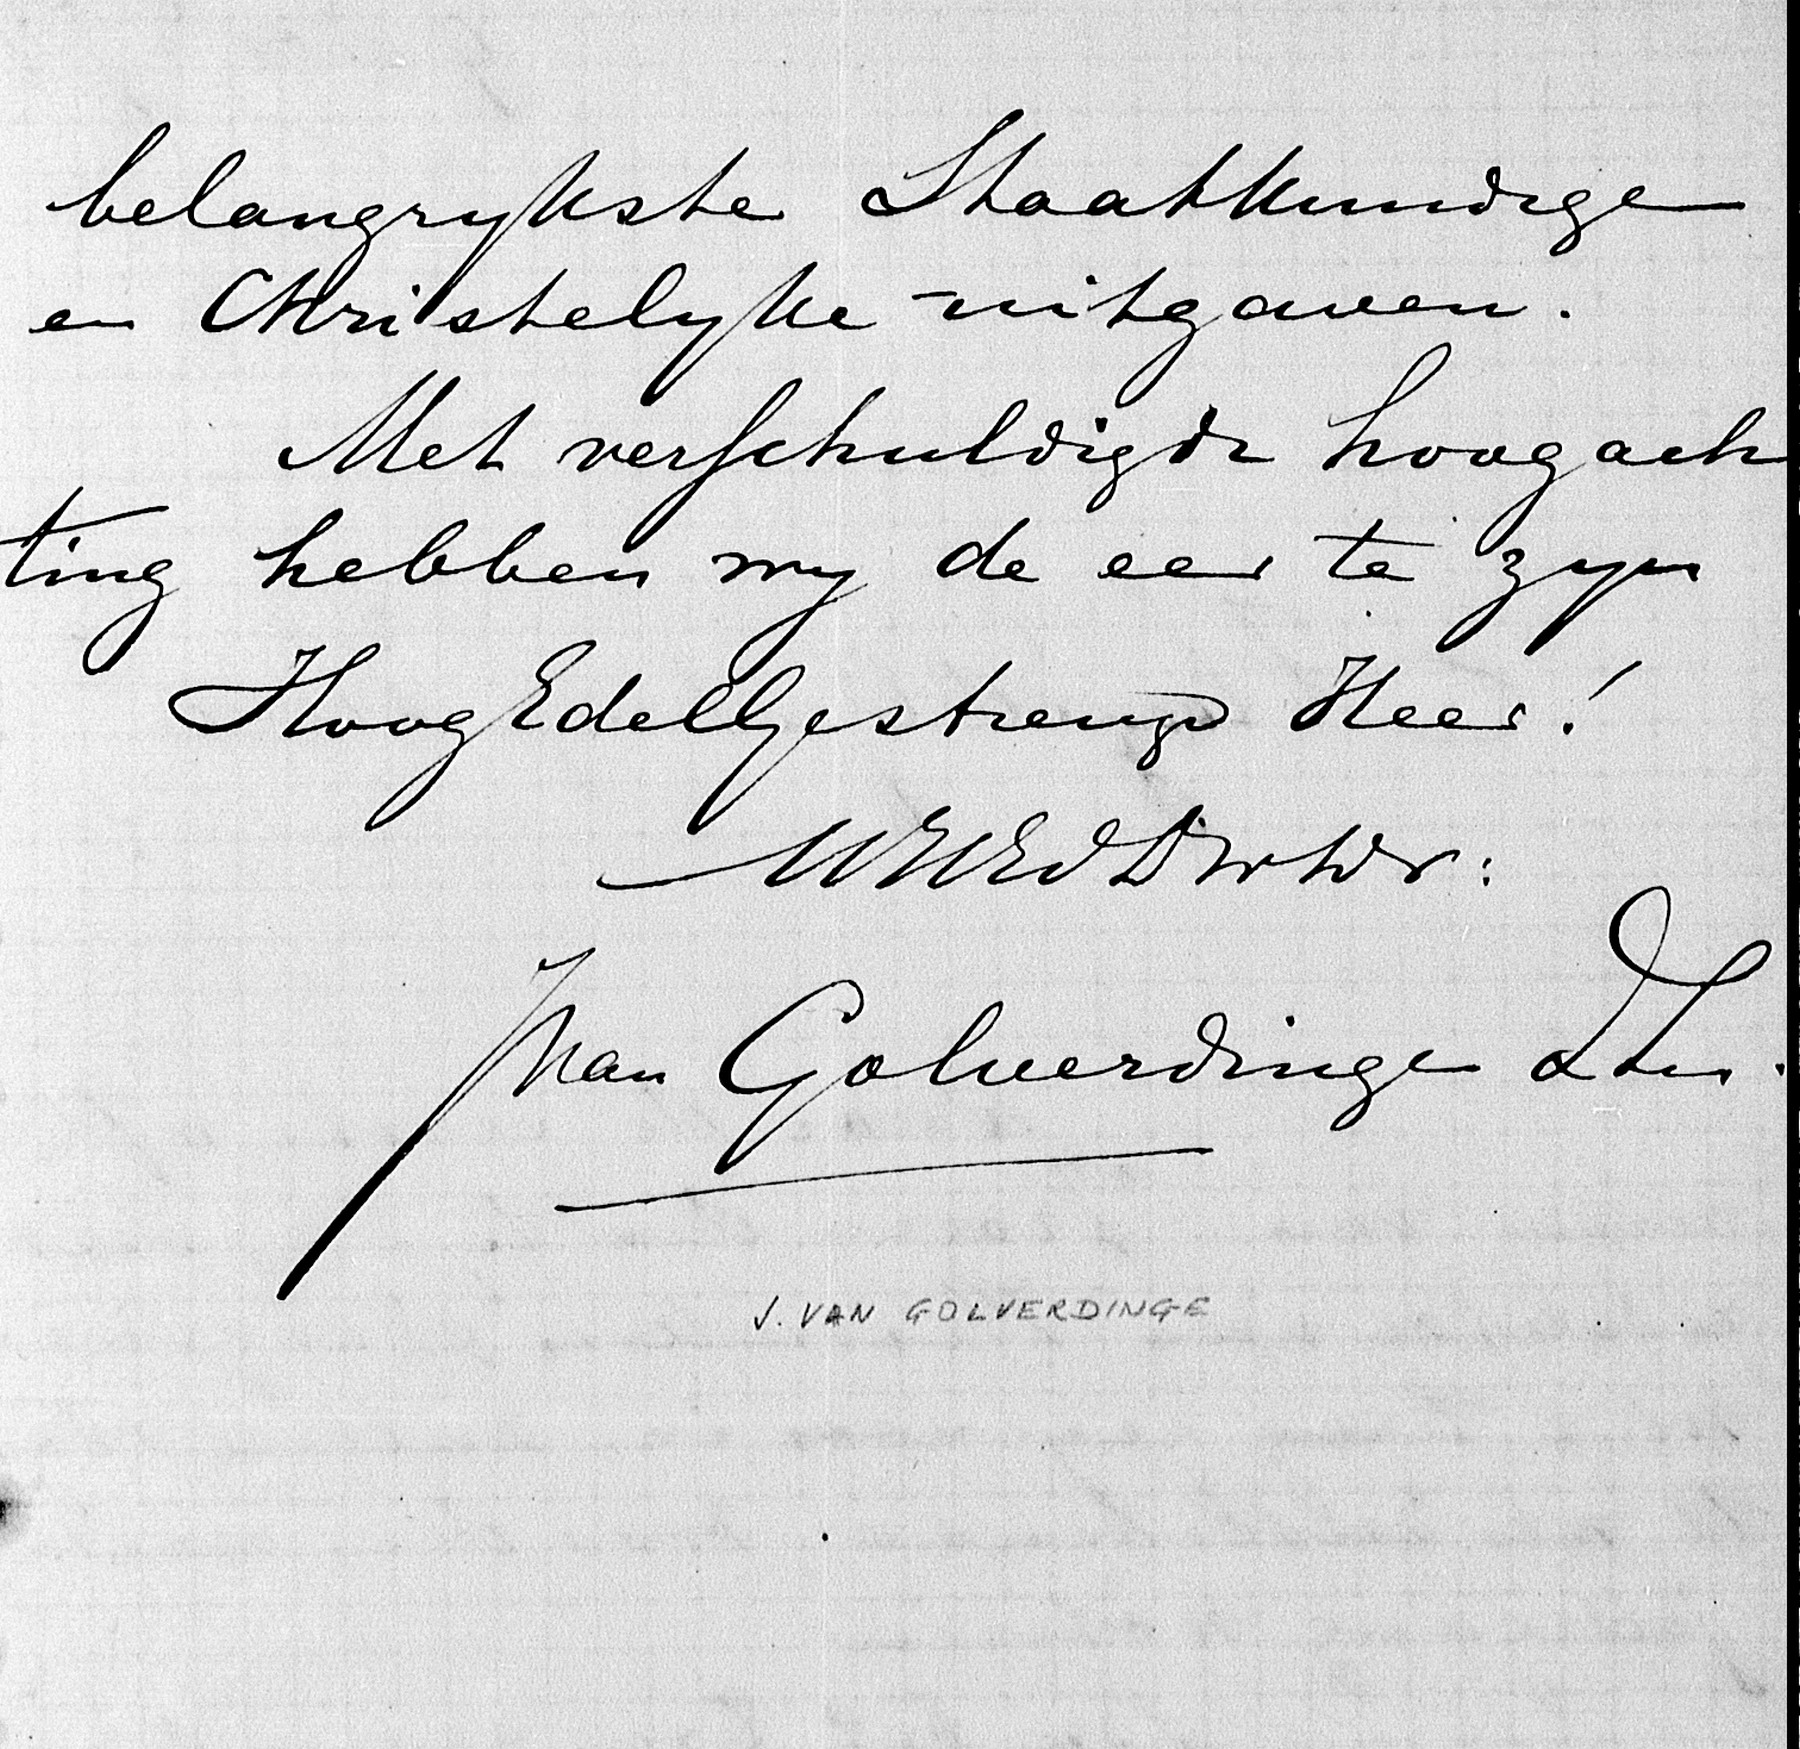 belangrykste Staatkundige
en Christelyke uitgaven.
Met verschuldigde hoogach
ting hebben wy de eer te zyn
HoogEdelGestrenge Heer!
UHEdDwDr:
J van Golverdinge
J. VAN GOLVERDINGE